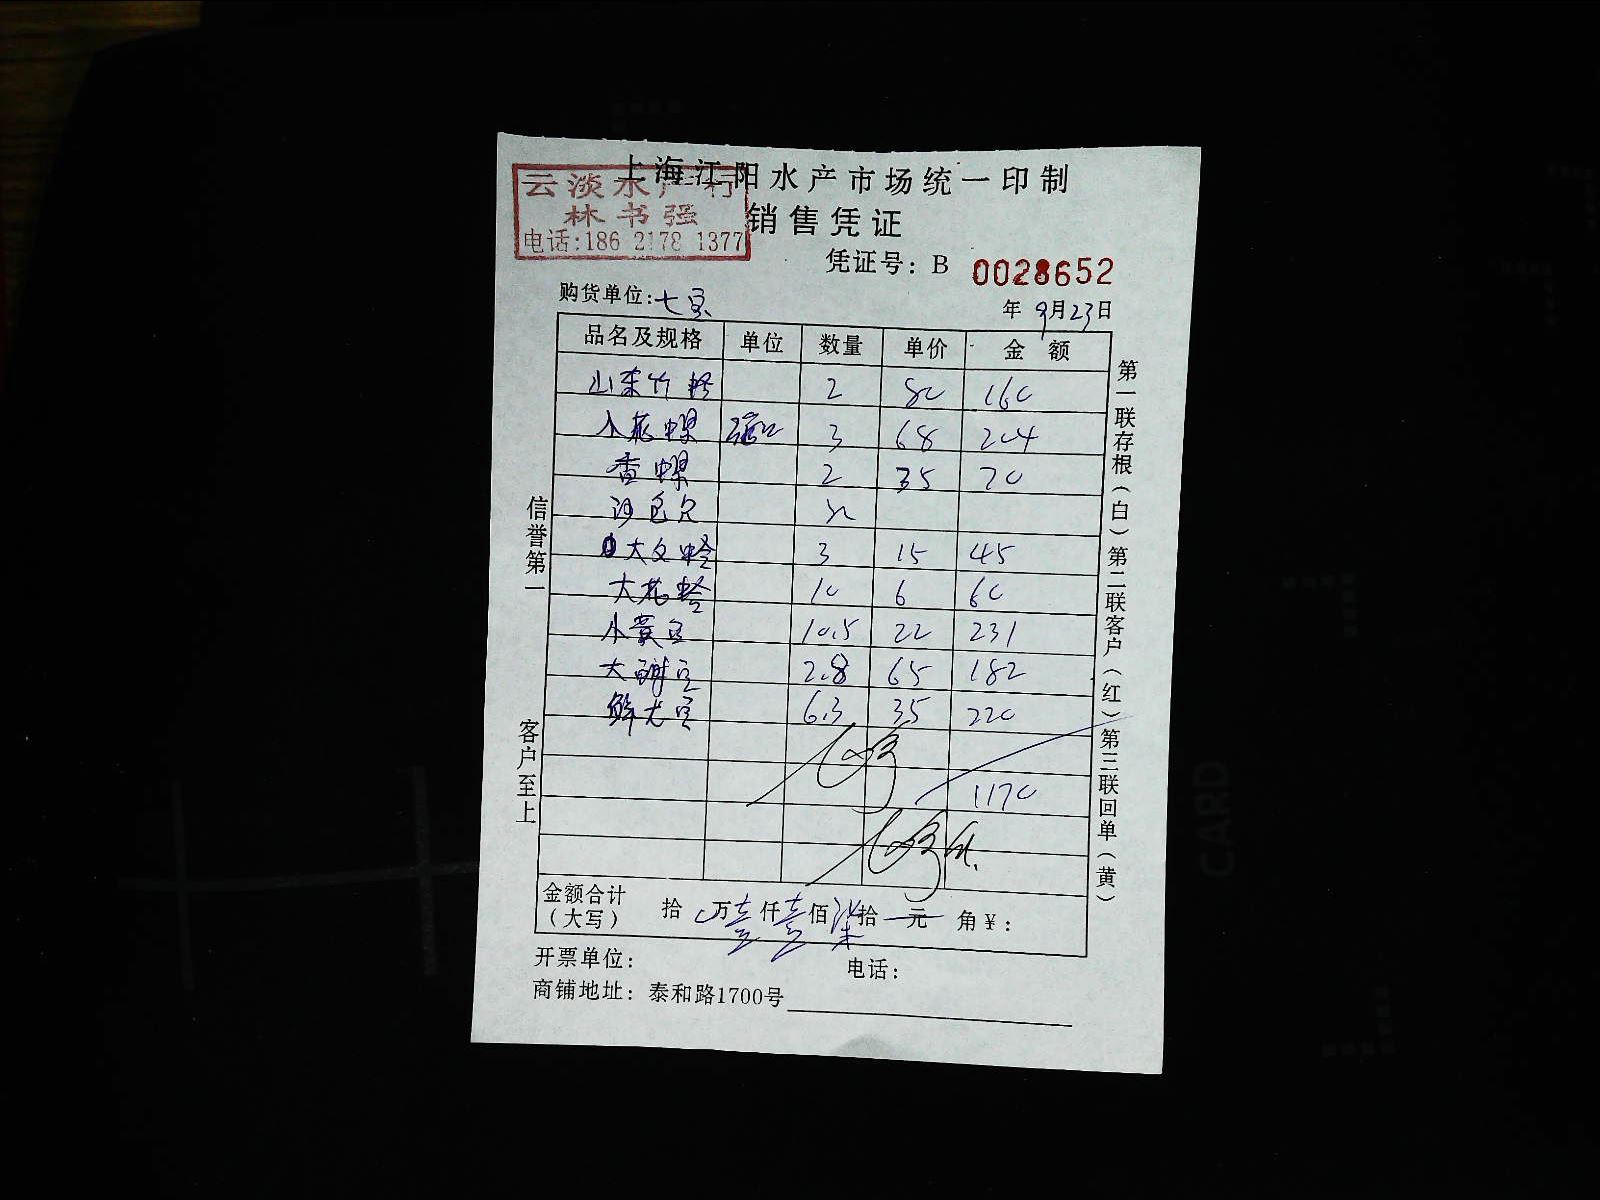 上海江阳水产市场统一印制
云淡水产行
林书强
电话:186 2178 1377
销售凭证
凭证号: B 0028652
购货单位:七宝 年 9月23日
品名及规格 单位 数量 单价 金额
山东竹蛏 2 80 160
八花螺 3 68 204
香螺 2 35 70
沙包
大文蛤 3 15 45
大花蛤 10 6 60
小黄豆 10.5 22 231
大 豆 2.8 65 182
鲜 豆 6.3 35 220
1170
金额合计(大写) 拾 万壹仟壹佰柒拾 元 角¥:
开票单位: 电话:
商铺地址: 泰和路1700号
信誉第一
客户至上
第一联存根(白)第二联客户(红)第三联回单(黄)
CARD